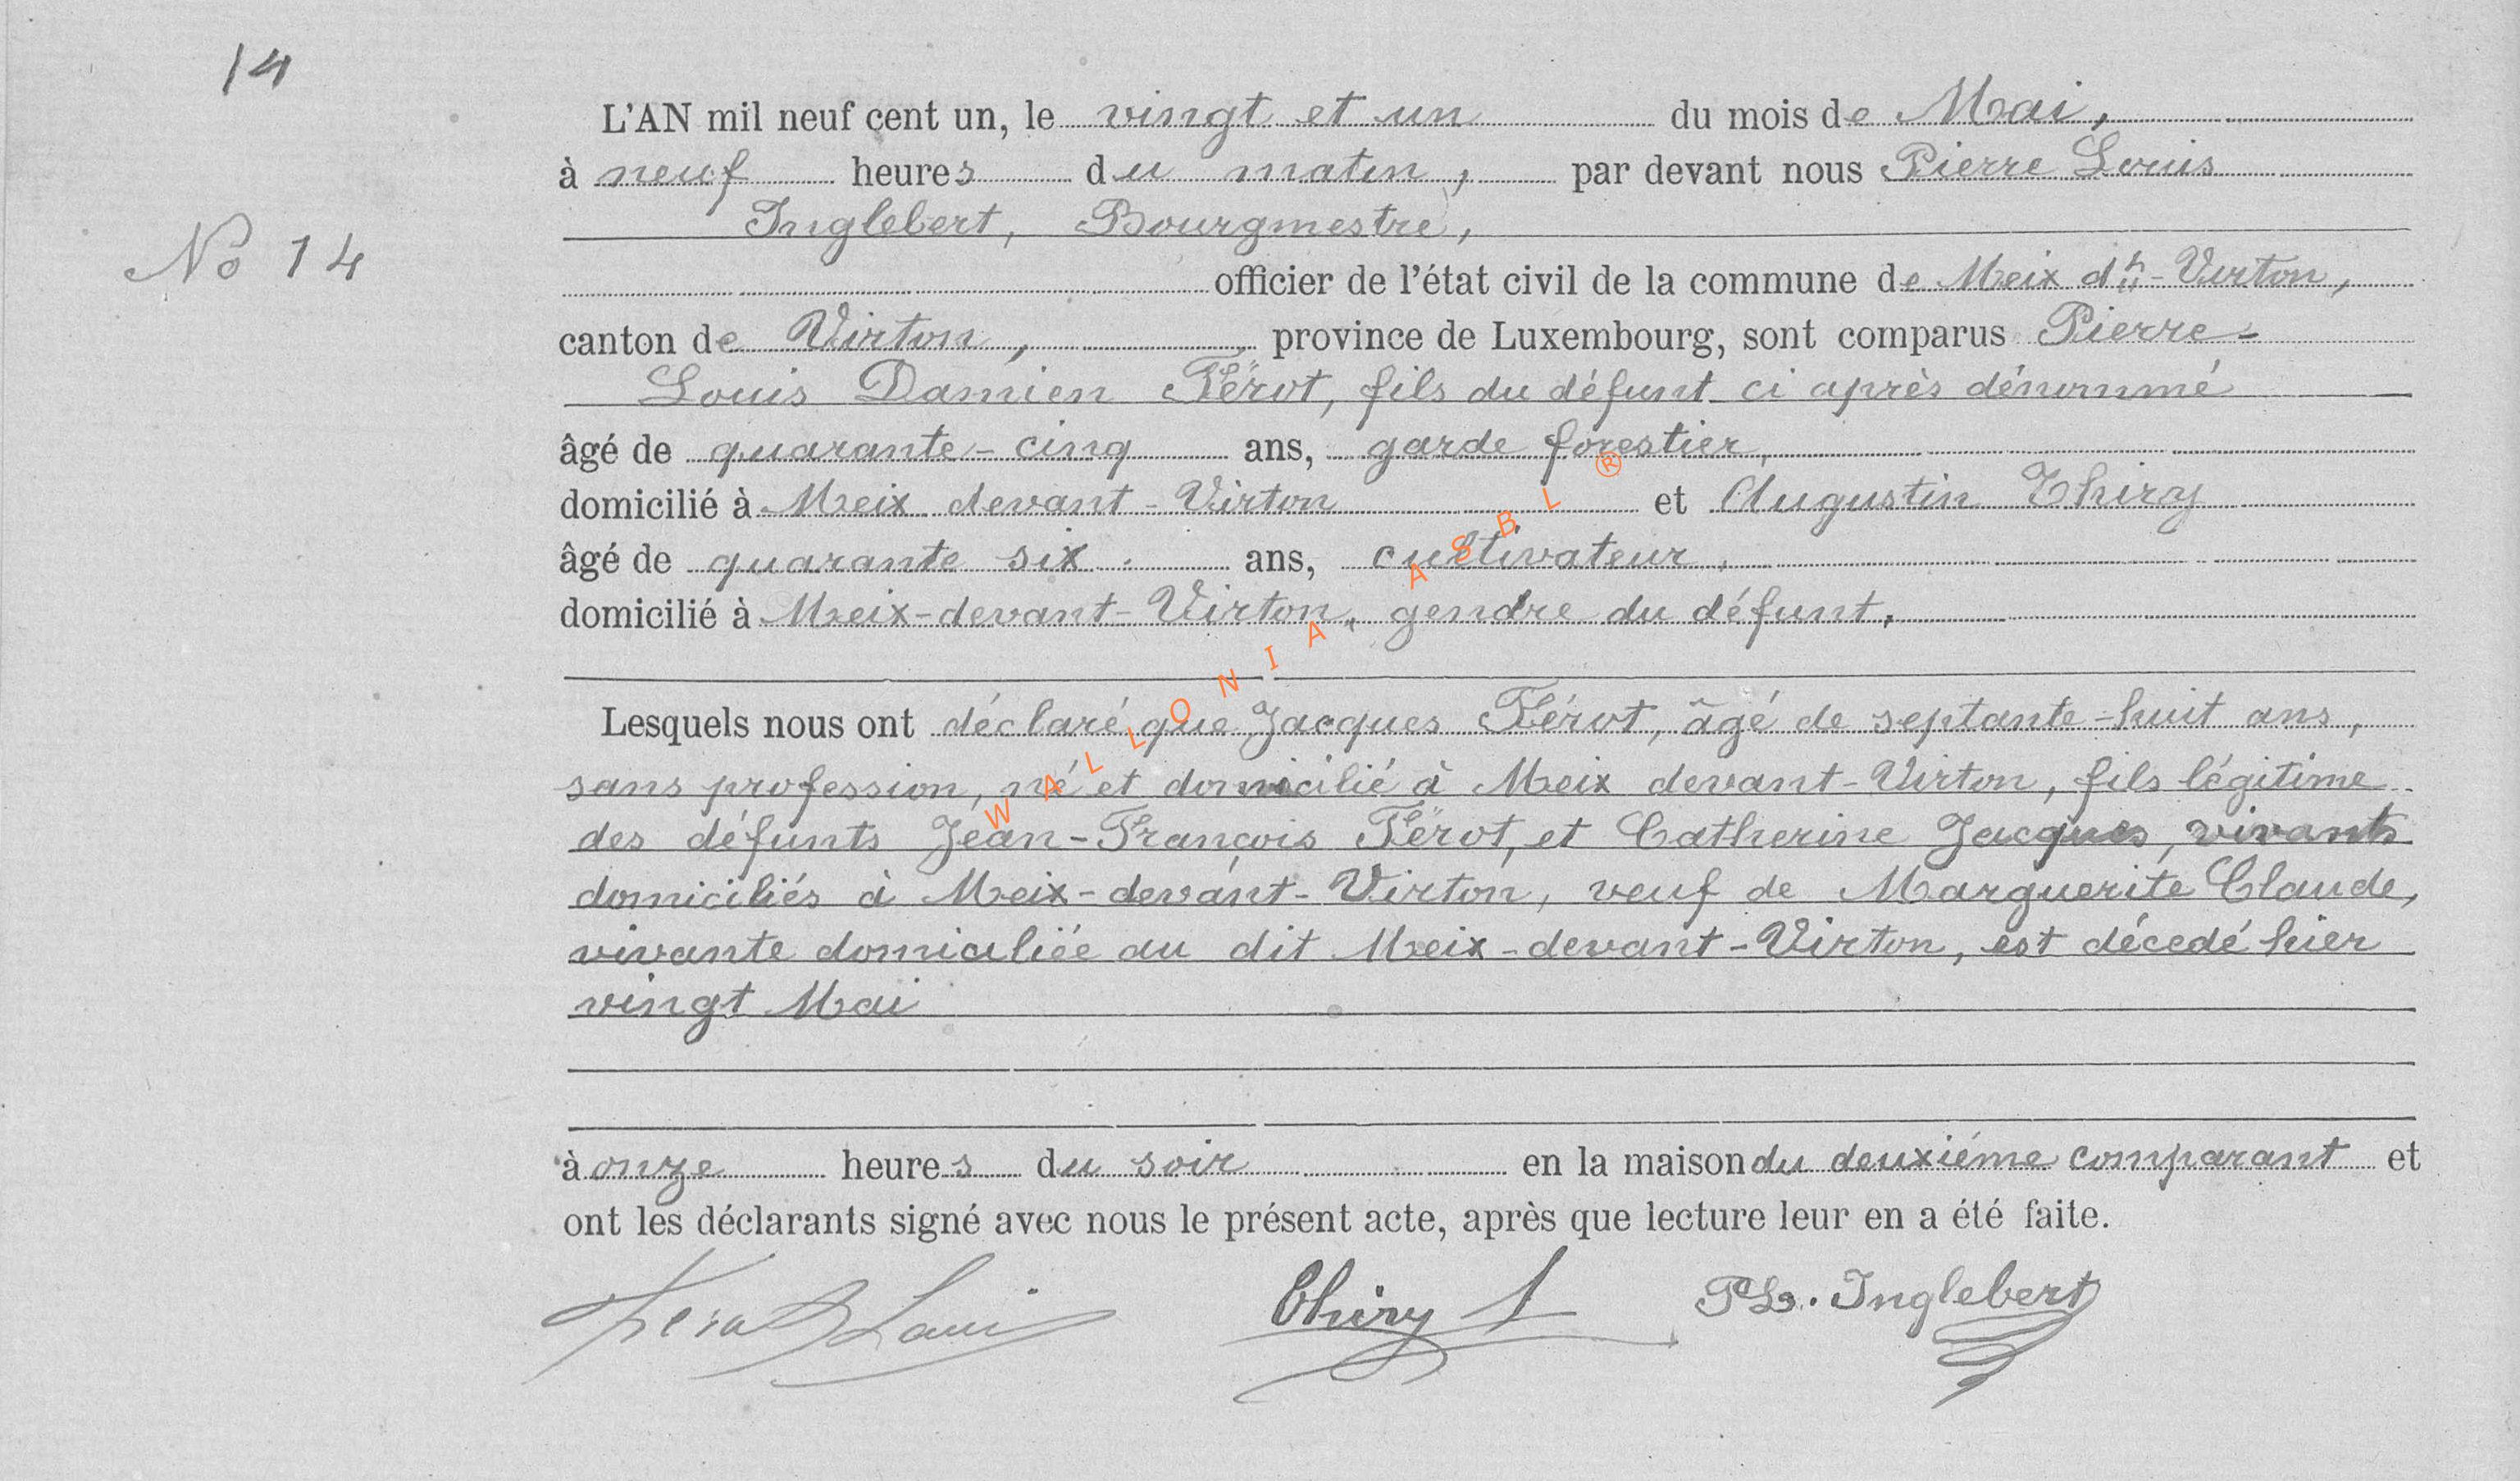 14
L'AN mil neuf cent un, le vingt et un du mois de Mai,
à neuf heures du matin, par devant nous Pierre Louis
Inglebert, Bourgmestre,
No 14
officier de l'état civil de la commune de Meix dt-Virton,
canton de Virton, province de Luxembourg, sont comparus Pierre-
Louis Damien Férot, fils du défunt ci après dénommé
âgé de quarante-cinq ans, garde forestier,
domicilié à Meix devant-Virton et Augustin Thiry
âgé de quarante six ans, cultivateur,
domicilié à Meix-devant-Virton, gendre du défunt,
Lesquels nous ont déclaré que Jacques Férot, âgé de septante-huit ans,
sans profession, né et domicilié à Meix devant-Virton, fils légitime
des défunts Jean-François Férot, et Catherine Jacques, vivants
domiciliés à Meix-devant-Virton, veuf de Marguerite Claude,
vivante domiciliée au dit Meix-devant-Virton, est décedé hier
vingt Mai
à onze heures du soir en la maison du deuxiéme comparant et
ont les déclarants signé avec nous le présent acte, après que lecture leur en a été faite.
Ferot Louis Thiry A PL. Inglebert
WALLONIA ASBL ®